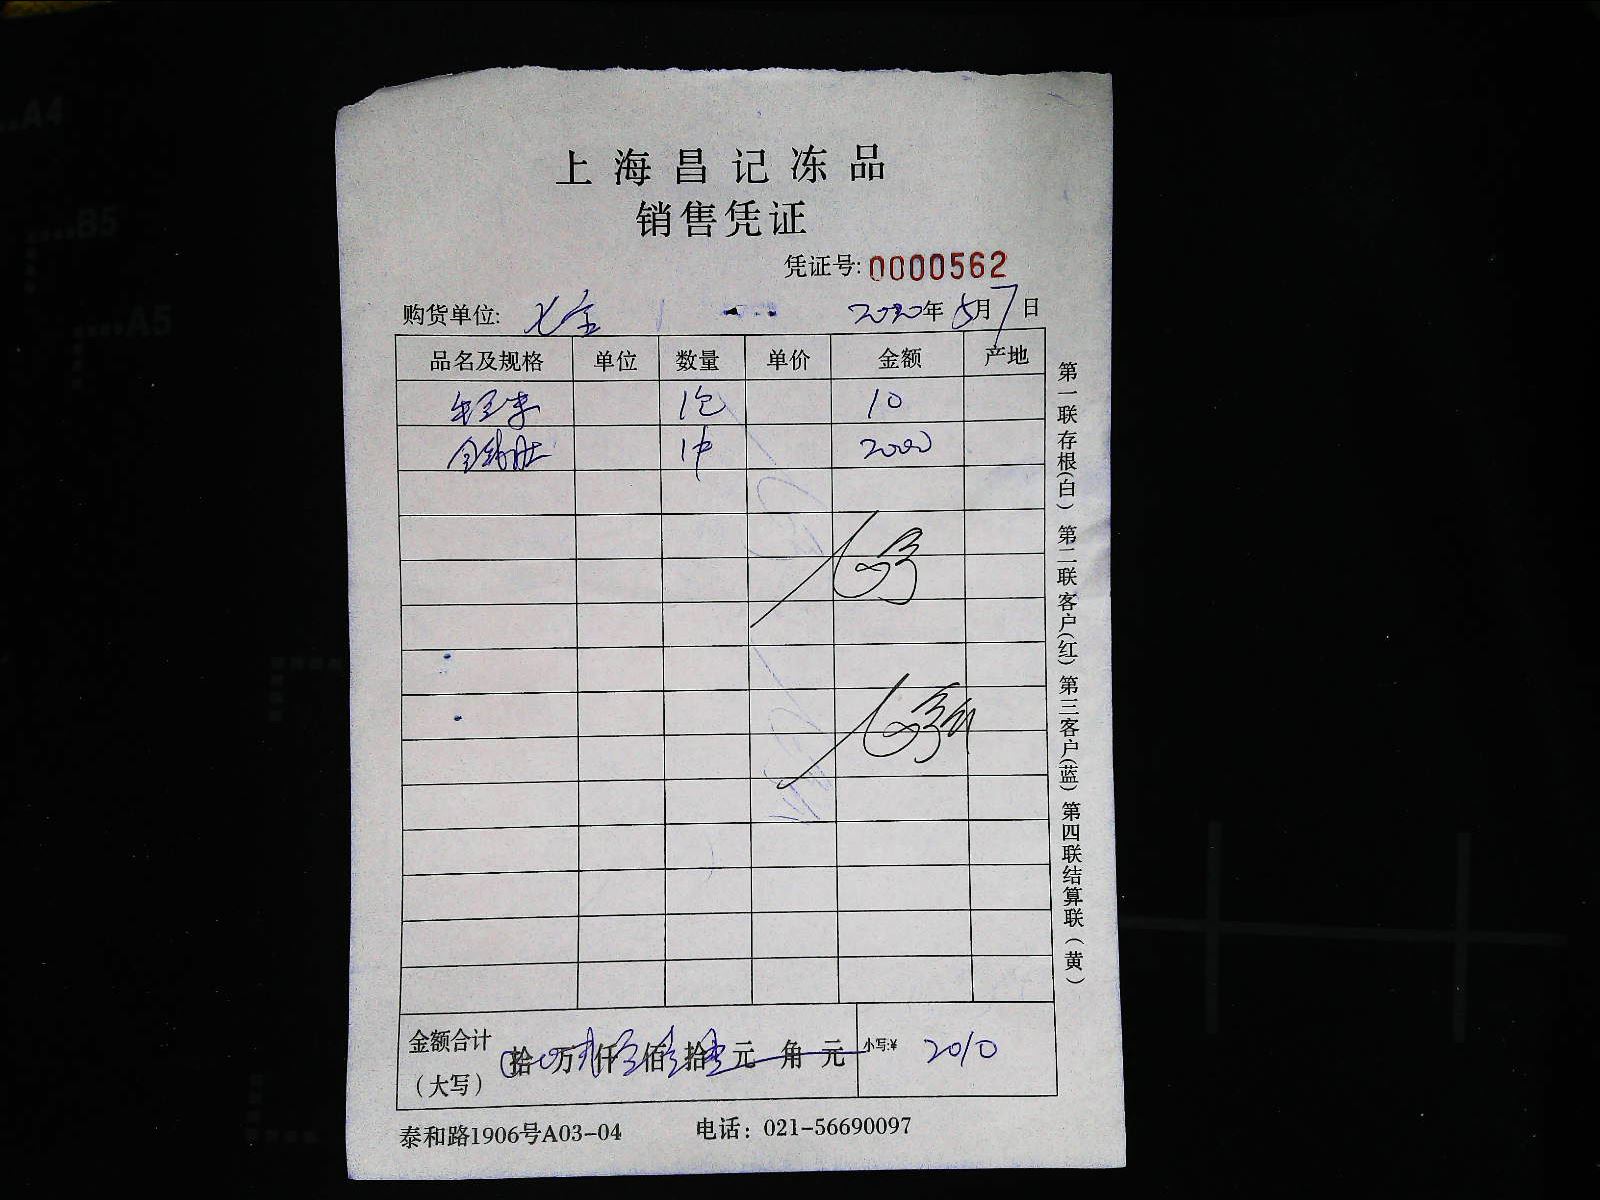 ...A4
...B5
...A5
上海昌记冻品
销售凭证
凭证号:0000562
购货单位: 2020年5月7日
品名及规格 单位 数量 单价 金额 产地
1包 10
1件 2000
金额合计(大写) 拾万仟佰拾元角元 小写:¥ 2010
泰和路1906号A03-04 电话: 021-56690097
第一联存根(白) 第二联客户(红) 第三客户(蓝) 第四联结算联(黄)